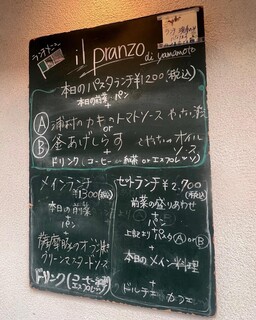 ランチコース
il pranzo
di yamamoto
本日のパスタランチ¥1200(税込)
本日の前菜+パン
+
Ⓐ 浦村のカキのトマトソース
or
Ⓑ 釜あげしらす
オイル
ソース
+
ドリンク(コーヒー 紅茶 or エスプレッソ)
メインランチ
¥1300(税込)
本日の前菜
+
パン
+
薩摩豚のオーブン焼き
グリーンマスタードソース
+
ドリンク(コーヒー 紅茶
エスプレッソ)
セットランチ¥2,700
(税込)
前菜の盛りあわせ
+
パン
+
上記よりパスタ Ⓐ or Ⓑ
+
本日のメイン料理
+
ドルチェ + カフェ